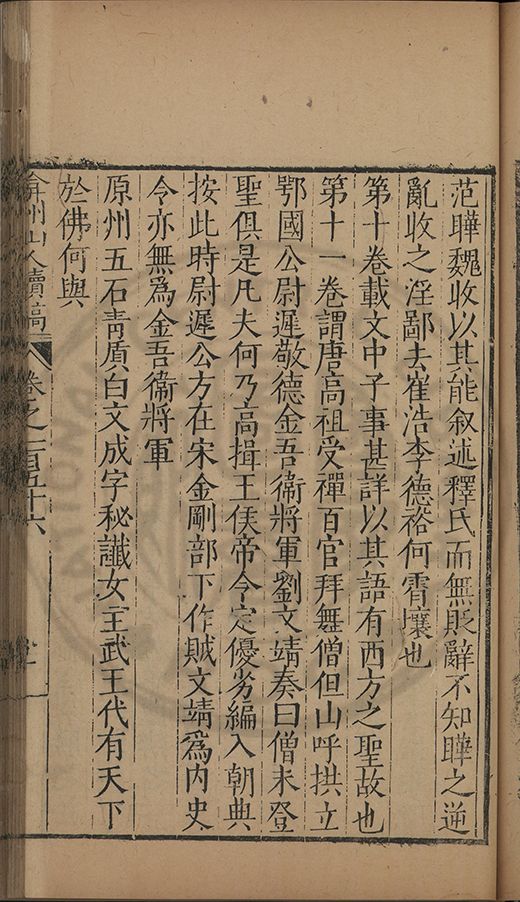 范曄魏收以其能叙述釋氏而無貶辭不知曄之逆
亂收之淫鄙去崔浩李德裕何霄壤也
第十卷載文中子事甚詳以其語有西方之聖故也
第十一卷謂唐高祖受禪百官拜舞僧但山呼拱立
鄂國公尉遲敬德金吾衞將軍劉文靖奏曰僧未登
聖俱是凡夫何乃高揖王侯帝令定優劣編入朝典
按此時尉遲公方在宋金剛部下作賊文靖爲内史
令亦無爲金吾衞將軍
原州五石青質白文成字秘讖女主武王代有天下
於佛何與
弇州山人續稿 卷之一百五十六